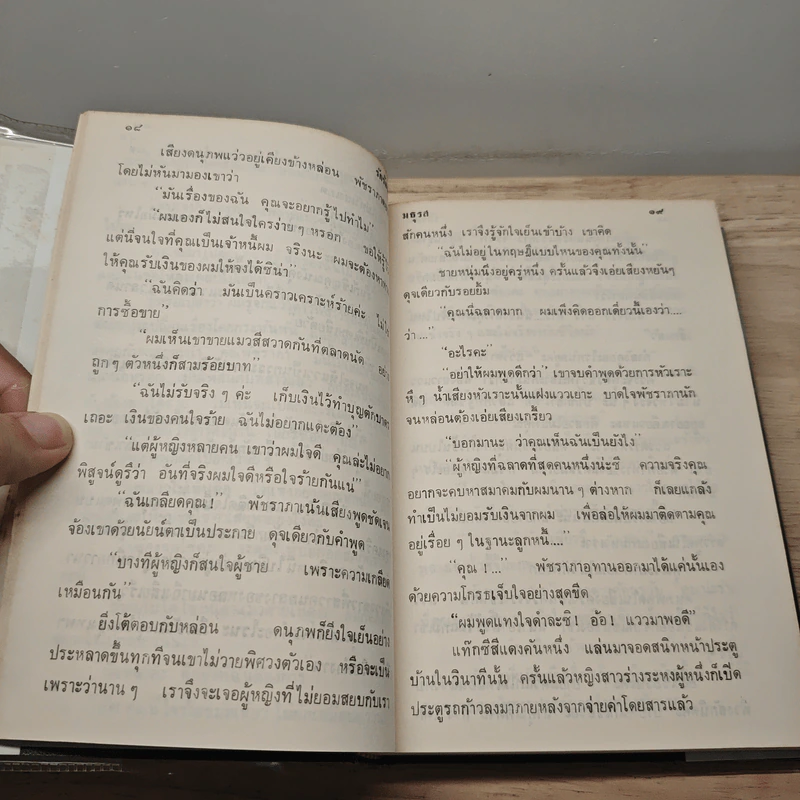 ๑๘
เสียงดนุภพแว่วอยู่เคียงข้างหล่อน พัชราภา
โดยไม่หันมามองเขาว่า
“มันเรื่องของฉัน คุณจะอยากรู้ไปทำไม”
“ผมเองก็ไม่สนใจใครง่ายๆ หรอก ขอให้รู้
แต่นี่จนใจที่คุณเป็นเจ้าหนี้ผม จริงนะ ผมจะต้องหา
ให้คุณรับเงินของผมให้จงได้ซิน่า”
“ฉันคิดว่า มันเป็นคราวเคราะห์ร้ายค่ะ ไม่ใช่
การซื้อขาย”
“ผมเห็นเขาขายแมวสีสวาดกันที่ตลาดนัด อย่าง
ถูกๆ ตัวหนึ่งก็สามร้อยบาท”
“ฉันไม่รับจริงๆ ค่ะ เก็บเงินไว้ทำบุญตักบาตร
เถอะ เงินของคนใจร้าย ฉันไม่อยากแตะต้อง”
“แต่ผู้หญิงหลายคน เขาว่าผมใจดี คุณล่ะไม่อยาก
พิสูจน์ดูรึว่า อันที่จริงผมใจดีหรือใจร้ายกันแน่”
“ฉันเกลียดคุณ!” พัชราภาเน้นเสียงพูดชัดเจน
จ้องเขาด้วยนัยน์ตาเป็นประกาย ดุจเดียวกับคำพูด
“บางทีผู้หญิงก็สนใจผู้ชาย เพราะความเกลียด
เหมือนกัน”
ยิ่งโต้ตอบกับหล่อน ดนุภพก็ยิ่งใจเย็นอย่าง
ประหลาดขึ้นทุกทีจนเขาไม่วายพิศวงตัวเอง หรือจะเป็น
เพราะว่านานๆ เราจึงจะเจอผู้หญิงที่ไม่ยอมสยบกับเรา
มธุรส ๑๙
สักคนหนึ่ง เราจึงรู้จักใจเย็นเข้าบ้าง เขาคิด
“ฉันไม่อยู่ในทฤษฎีแบบไหนของคุณทั้งนั้น”
ชายหนุ่มนิ่งอยู่ครู่หนึ่ง ครั้นแล้วจึงเอ่ยเสียงหยันๆ
ดุจเดียวกับรอยยิ้ม
“คุณนี่ฉลาดมาก ผมเพิ่งคิดออกเดี๋ยวนี้เองว่า....
ว่า...”
“อะไรคะ”
“อย่าให้ผมพูดดีกว่า” เขาจบคำพูดด้วยการหัวเราะ
หึๆ น้ำเสียงหัวเราะนั้นแฝงแววเยาะ บาดใจพัชราภานัก
จนหล่อนต้องเอ่ยเสียงเกรี้ยว
“บอกมานะ ว่าคุณเห็นฉันเป็นยังไง”
“ผู้หญิงที่ฉลาดที่สุดคนหนึ่งน่ะซิ ความจริงคุณ
อยากจะคบหาสมาคมกับผมนานๆ ต่างหาก ก็เลยแกล้ง
ทำเป็นไม่ยอมรับเงินจากผม เพื่อล่อให้ผมมาติดตามคุณ
อยู่เรื่อยๆ ในฐานะลูกหนี้....”
“คุณ !...” พัชราภาอุทานออกมาได้แค่นั้นเอง
ด้วยความโกรธเจ็บใจอย่างสุดขีด
“ผมพูดแทงใจดำละซิ ! อ้อ ! แววมาพอดี”
แท๊กซีสีแดงคันหนึ่ง แล่นมาจอดสนิทหน้าประตู
บ้านในวินาทีนั้น ครั้นแล้วหญิงสาวร่างระหงผู้หนึ่งก็เปิด
ประตูรถก้าวลงมาภายหลังจากจ่ายค่าโดยสารแล้ว